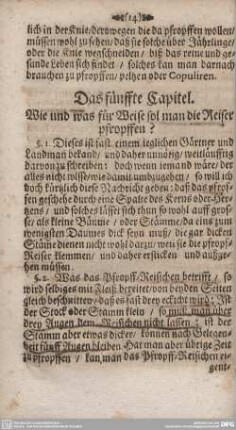 (14)
lich in der Knie/ derowegen die da pfropffen wollen/
müssen wohl zu sehen/ daß sie solche über Jährlinge/
oder die Knie wegschneiden/ biß das reine und ge-
sunde Leben sich findet/ solches kan man darnach
brauchen zu pfropffen/ peltzen oder Copuliren.
Das fünffte Capitel.
Wie und was für Weise sol man die Reiser
pfropffen?
§. 1. Dieses ist fast einem ieglichen Gärtner und
Landman bekand/ und daher unnötig/ weitläufftig
darvon zu schreiben: doch wenn iemand wäre/ der
alles nicht wisse/ wie damit umbzugehen/ so will ich
doch kürtzlich diese Nachricht geben: daß das pfropf-
fen geschehe durch eine Spalte des Kerns oder Her-
tzens/ und solches lässet sich thun so wohl auff gros-
se/ als kleine Bäume/ oder Stämme/ da eins zum
wenigsten Daumes dick seyn muß/ die gar dicken
Stäme dienen nicht wohl darzu/ weil sie die pfropf-
Reiser klemmen/ und daher ersticken und aussge-
hen müssen.
§. 2. Was das Pfropff-Reischen betrifft/ so
wird selbiges mit Fleiß bereitet/ von beyden Seiten
gleich beschnitten/ daß es fast drey eckicht wird: Ist
der Stock oder Stamm klein/ so muß man über
drey Augen dem Reischen nicht lassen: ist der
Stamm aber etwas dicker/ können nach Gelegen-
heit fünff Augen bleiben. Hat man aber übrige Zeit
zu pfropffen/ kan man das Pfropff-Reischen ei-
gent-